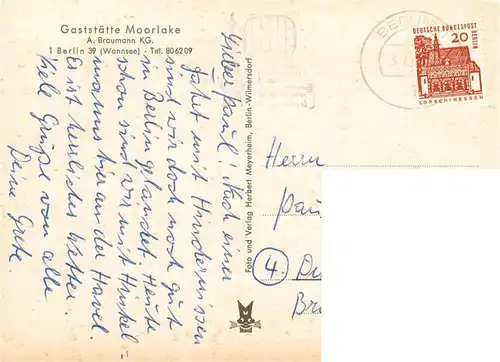 Gaststätte Moorlake
A. Braumann KG.
1 Berlin 39 (Wannsee) - Tel. 806209
Lieber Paul! Nach einer
Fahrt mit Hindernissen
sind wir doch noch gut
in Berlin gelandet. Heute
schon sind wir mit Hinkel-
manns hier an der Havel.
Es ist herrliches Wetter.
Viele Grüße von alle
Deine Grete.
Foto und Verlag Herbert Meyerheim, Berlin-Wilmersdorf
BERLIN
DEUTSCHE BUNDESPOST
BERLIN
20
LORSCH/HESSEN
Herrn
Pau
4. Du
Br